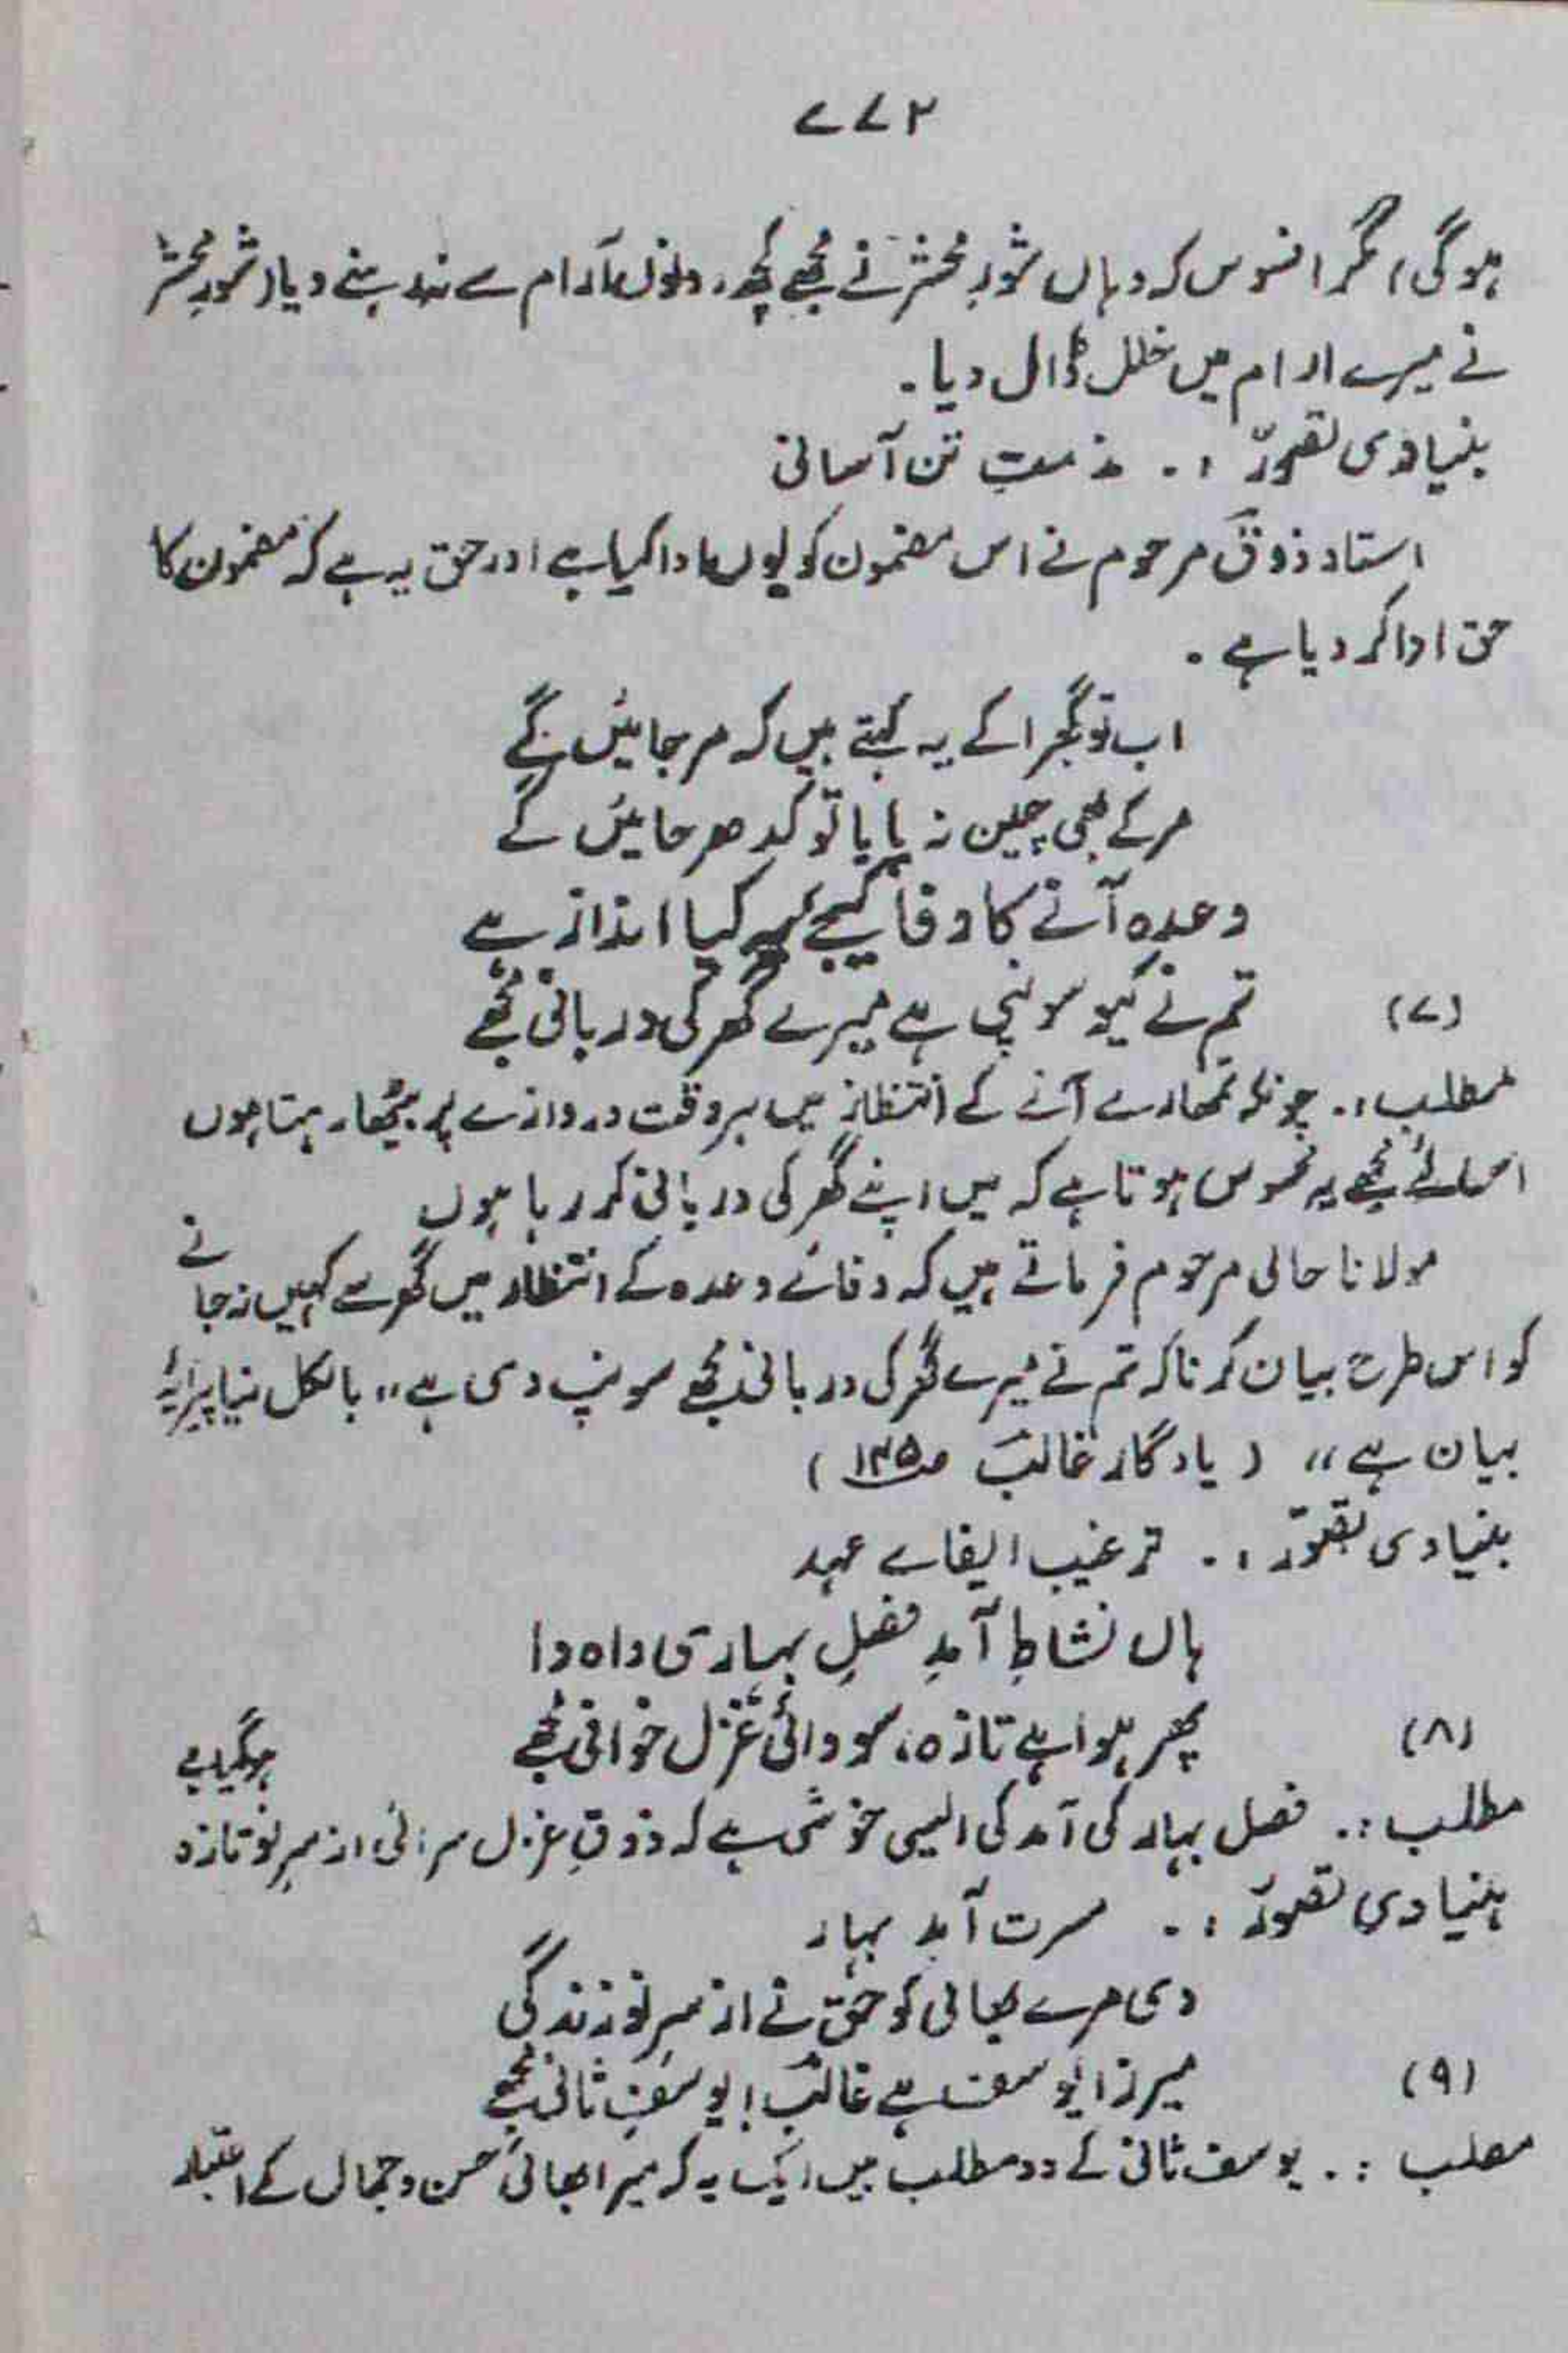 ۷۷۲
ہوگی، مگر افسوس کہ وہاں شورِ محشر نے مجھے کچھ دنوں آرام سے نہ رہنے دیا، شورِ محشر
نے میرے ارام میں خلل ڈال دیا۔
بنیادی تصوّر :۔ مذمتِ تن آسانی
استاد ذوقؔ مرحوم نے اس مضمون کو یوں ادا کیا ہے اور حق یہ ہے کہ مضمون کا
حق ادا کر دیا ہے۔
اب تو گھبرا کے یہ کہتے ہیں کہ مر جائیں گے
مر کے بھی چین نہ پایا تو کدھر جائیں گے
وعدہ آنے کا وفا کیجے یہ کیا انداز ہے
(۷) تم نے کیوں سونپی ہے میرے گھر کی دربانی مجھے
مطلب :۔ چونکہ تمھارے آنے کے انتظار میں ہر وقت دروازے پر بیٹھا رہتا ہوں
اسلئے مجھے یہ محسوس ہوتا ہے کہ میں اپنے گھر کی دربانی کر رہا ہوں
مولانا حالی مرحوم فرماتے ہیں کہ وفائے وعدہ کے انتظار میں گھر سے کہیں نہ جانے
کو اس طرح بیان کرنا کہ تم نے میرے گھر کی دربانی مجھے سونپ دی ہے،، بالکل نیا پیرایۂ
بیان ہے،، ( یادگارِ غالبؔ ص۱۳۵ )
بنیادی تصوّر :۔ ترغیب ایفاے عہد
ہاں نشاطِ آمدِ فصلِ بہاری واہ وا
(۸) پھر ہوا ہے تازہ، سودائی غزل خوانی مجھے
مطلب :۔ فصل بہار کی آمد کی ایسی خوشی ہے کہ ذوقِ غزل سرائی از سرِ نو تازہ ہوگیا ہے
بنیادی تصوّر :۔ مسرت آمدِ بہار
دی مرے بھائی کو حق نے از سرِ نو زندگی
(۹) میرزا یوسف ہے غالبؔ! یوسفِ ثانی مجھے
مطلب :۔ یوسف ثانی کے دو مطلب ہیں ایک یہ کہ میرا بھائی حسن و جمال کے اعتبار